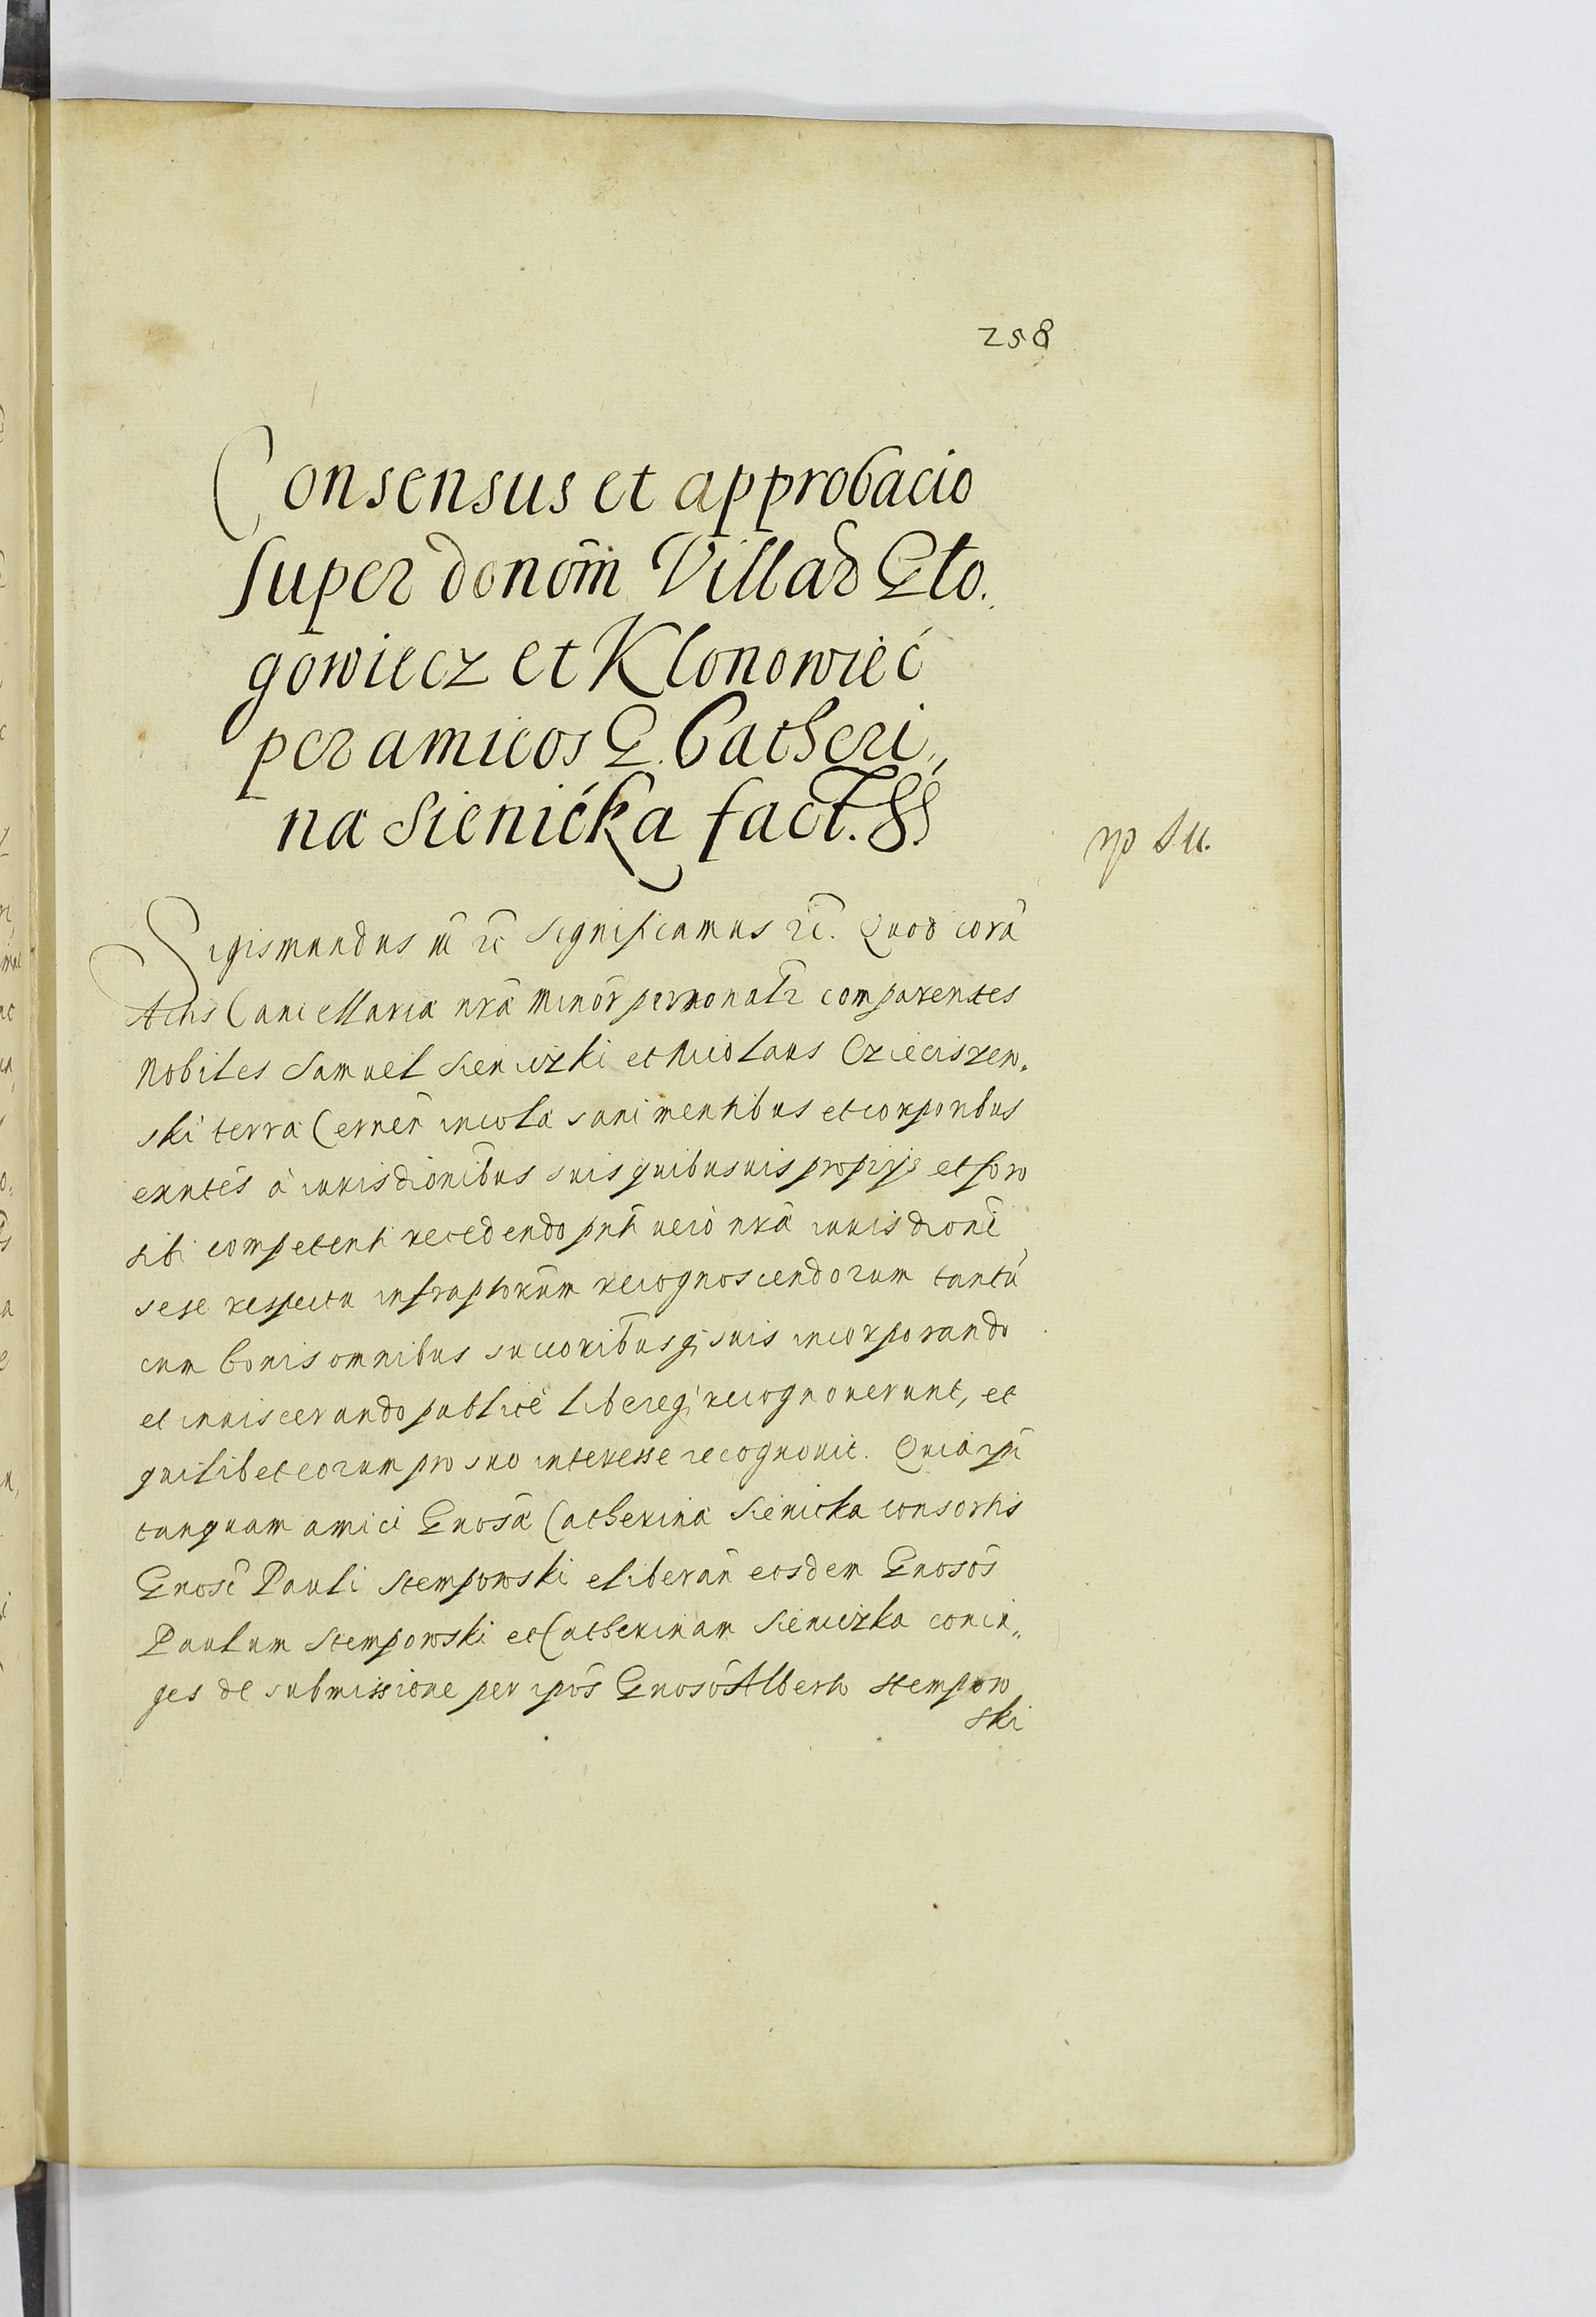 258
Consensus et approbacio
super donom̃ Villar Glo.
gowiecz et Klonowiec
per amicos G. Catheri,,
na Sienicka fact. SS
Sigismundus iii zc̃ Significamus zc̃. Quod corã
Actis Cancellaria nrã minor̃ personatr̃ comparentes
Nobiles Samuel Sieniczki et Nicolaus Czieciszew.
ski terra Cernen̄ incola sani mentibus et corporibus
exntēs à iurisdionibus suis quibusuis proprijs et foro
sibi competenti recedendo pnti verò nrã iurisdioni
sese respectu infraptorum recognoscendorum tantũ
cum bonis omnibus succoribusq; suis incorporando
et inuiscerando publicè libereq; recognouerunt, et
quilibet eorum pro suo interesse recognouit. Quia ipsi
tanquam amici Gnosa Catherina Sienicka consortis
Gnosi Pauli Stempowski eliberan̄ eosdem Gnosos
Paulum Stempowski et Catherinam Sieniczka coniu,,
ges de submissione per ipos Gnoso Alberto Stempow
ski